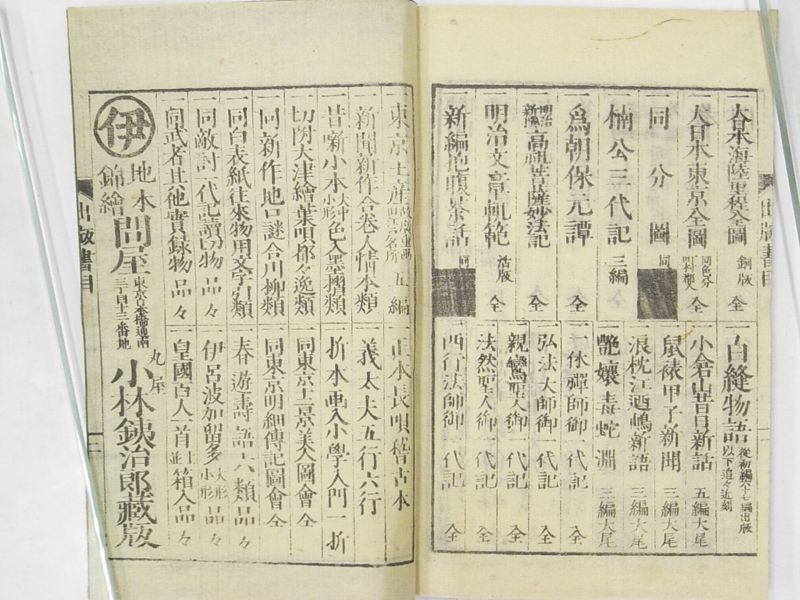 一大日本海陸里程全圖 銅版 全
一大日本東京全圖 同色分 全
一同 分 圖 同
一楠公三代記 三編
一爲朝保元譚 全
一高祖菩薩妙法記 全
一明治文章軌範 活版 全
一新編 茶話 同
一白縫物語 從初編 編出版 以下追々近刻
一小倉山昔日新話 五編大尾
一鼠裱甲子新聞 三編大尾
一浪枕江廼嶋新語 三編大尾
一艶孃毒蛇淵 三編大尾
一一休禪師御一代記 全
一弘法大師御一代記 全
一親鸞聖人御一代記 全
一法然聖人御一代記 全
一西行法師御一代記 全
一東京土産 五編
一新聞新作合卷人情本類
一昔噺小本 大中小形 色入墨摺類
一切附大津繪葉唄都々逸類
一同新作地口謎合川柳類
一同白表紙往來物用文字引類
一同敵討一代記讀切物 品々
一同武者其他實録物 品々
一正本長唄稽古本
一義太夫五行六行
一折本画入小學入門一折
一同東京土景美人圖會 全
一同東京明細傳記圖會 全
一春遊壽語六類品々
一伊呂波加留多 大形小形 品々
一皇國百人一首 上並 箱入品々
伊
地本
錦繪
問屋
東京日本橋通南
三丁目十三番地
丸屋
小林鉄治郎藏版
出版書目
出版書目